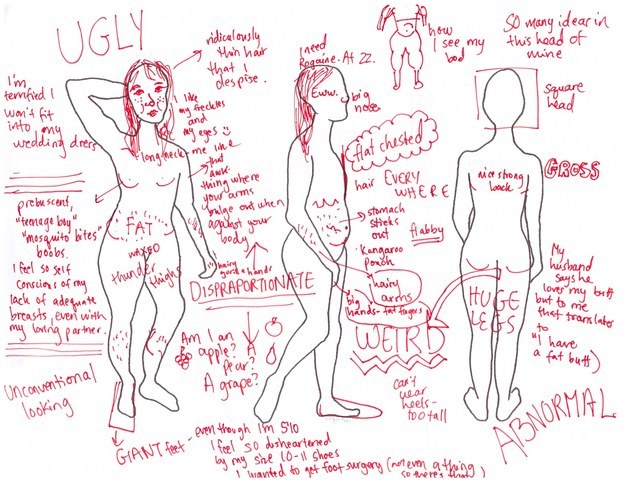 UGLY
ridiculously
thin hair
that I
despise.
I need
Rogaine. At 22.
how
I see my
bod
So many ideas in
this head of
mine
I'm
terrified I
won't fit
into my
wedding dress
I like
my freckles
and
my eyes
Eww.
big
nose
square
head
long neck
me like
that
awk.
thing where
your arms
bulge out when
against your
body
flat chested
hair EVERY
WHERE
nice strong
back
GROSS
prebuscent,
"teenage boy"
"mosquito bites"
boobs.
I feel so self
conscious of my
lack of adequate
breasts, even with
my loving partner.
FAT
waxed
thunder thighs
stomach
sticks
out
flabby
Kangaroo
pouch
hairy
hands
DISPRAPORTIONATE
hairy
arms
big
hands - fat fingers
WEIRD
HUGE
LEGS
My
husband
says he
loves my butt
but to me
that translates
to
"I have
a fat butt)
Am I an
apple? A
pear?
A grape?
Unconventional
looking
can't
wear
heels -
too tall
ABNORMAL
GIANT feet - even though I'm 5'10
I feel SO disheartened
by my size 10-11 shoes
I wanted to get foot surgery (not even a thing
so there's that)